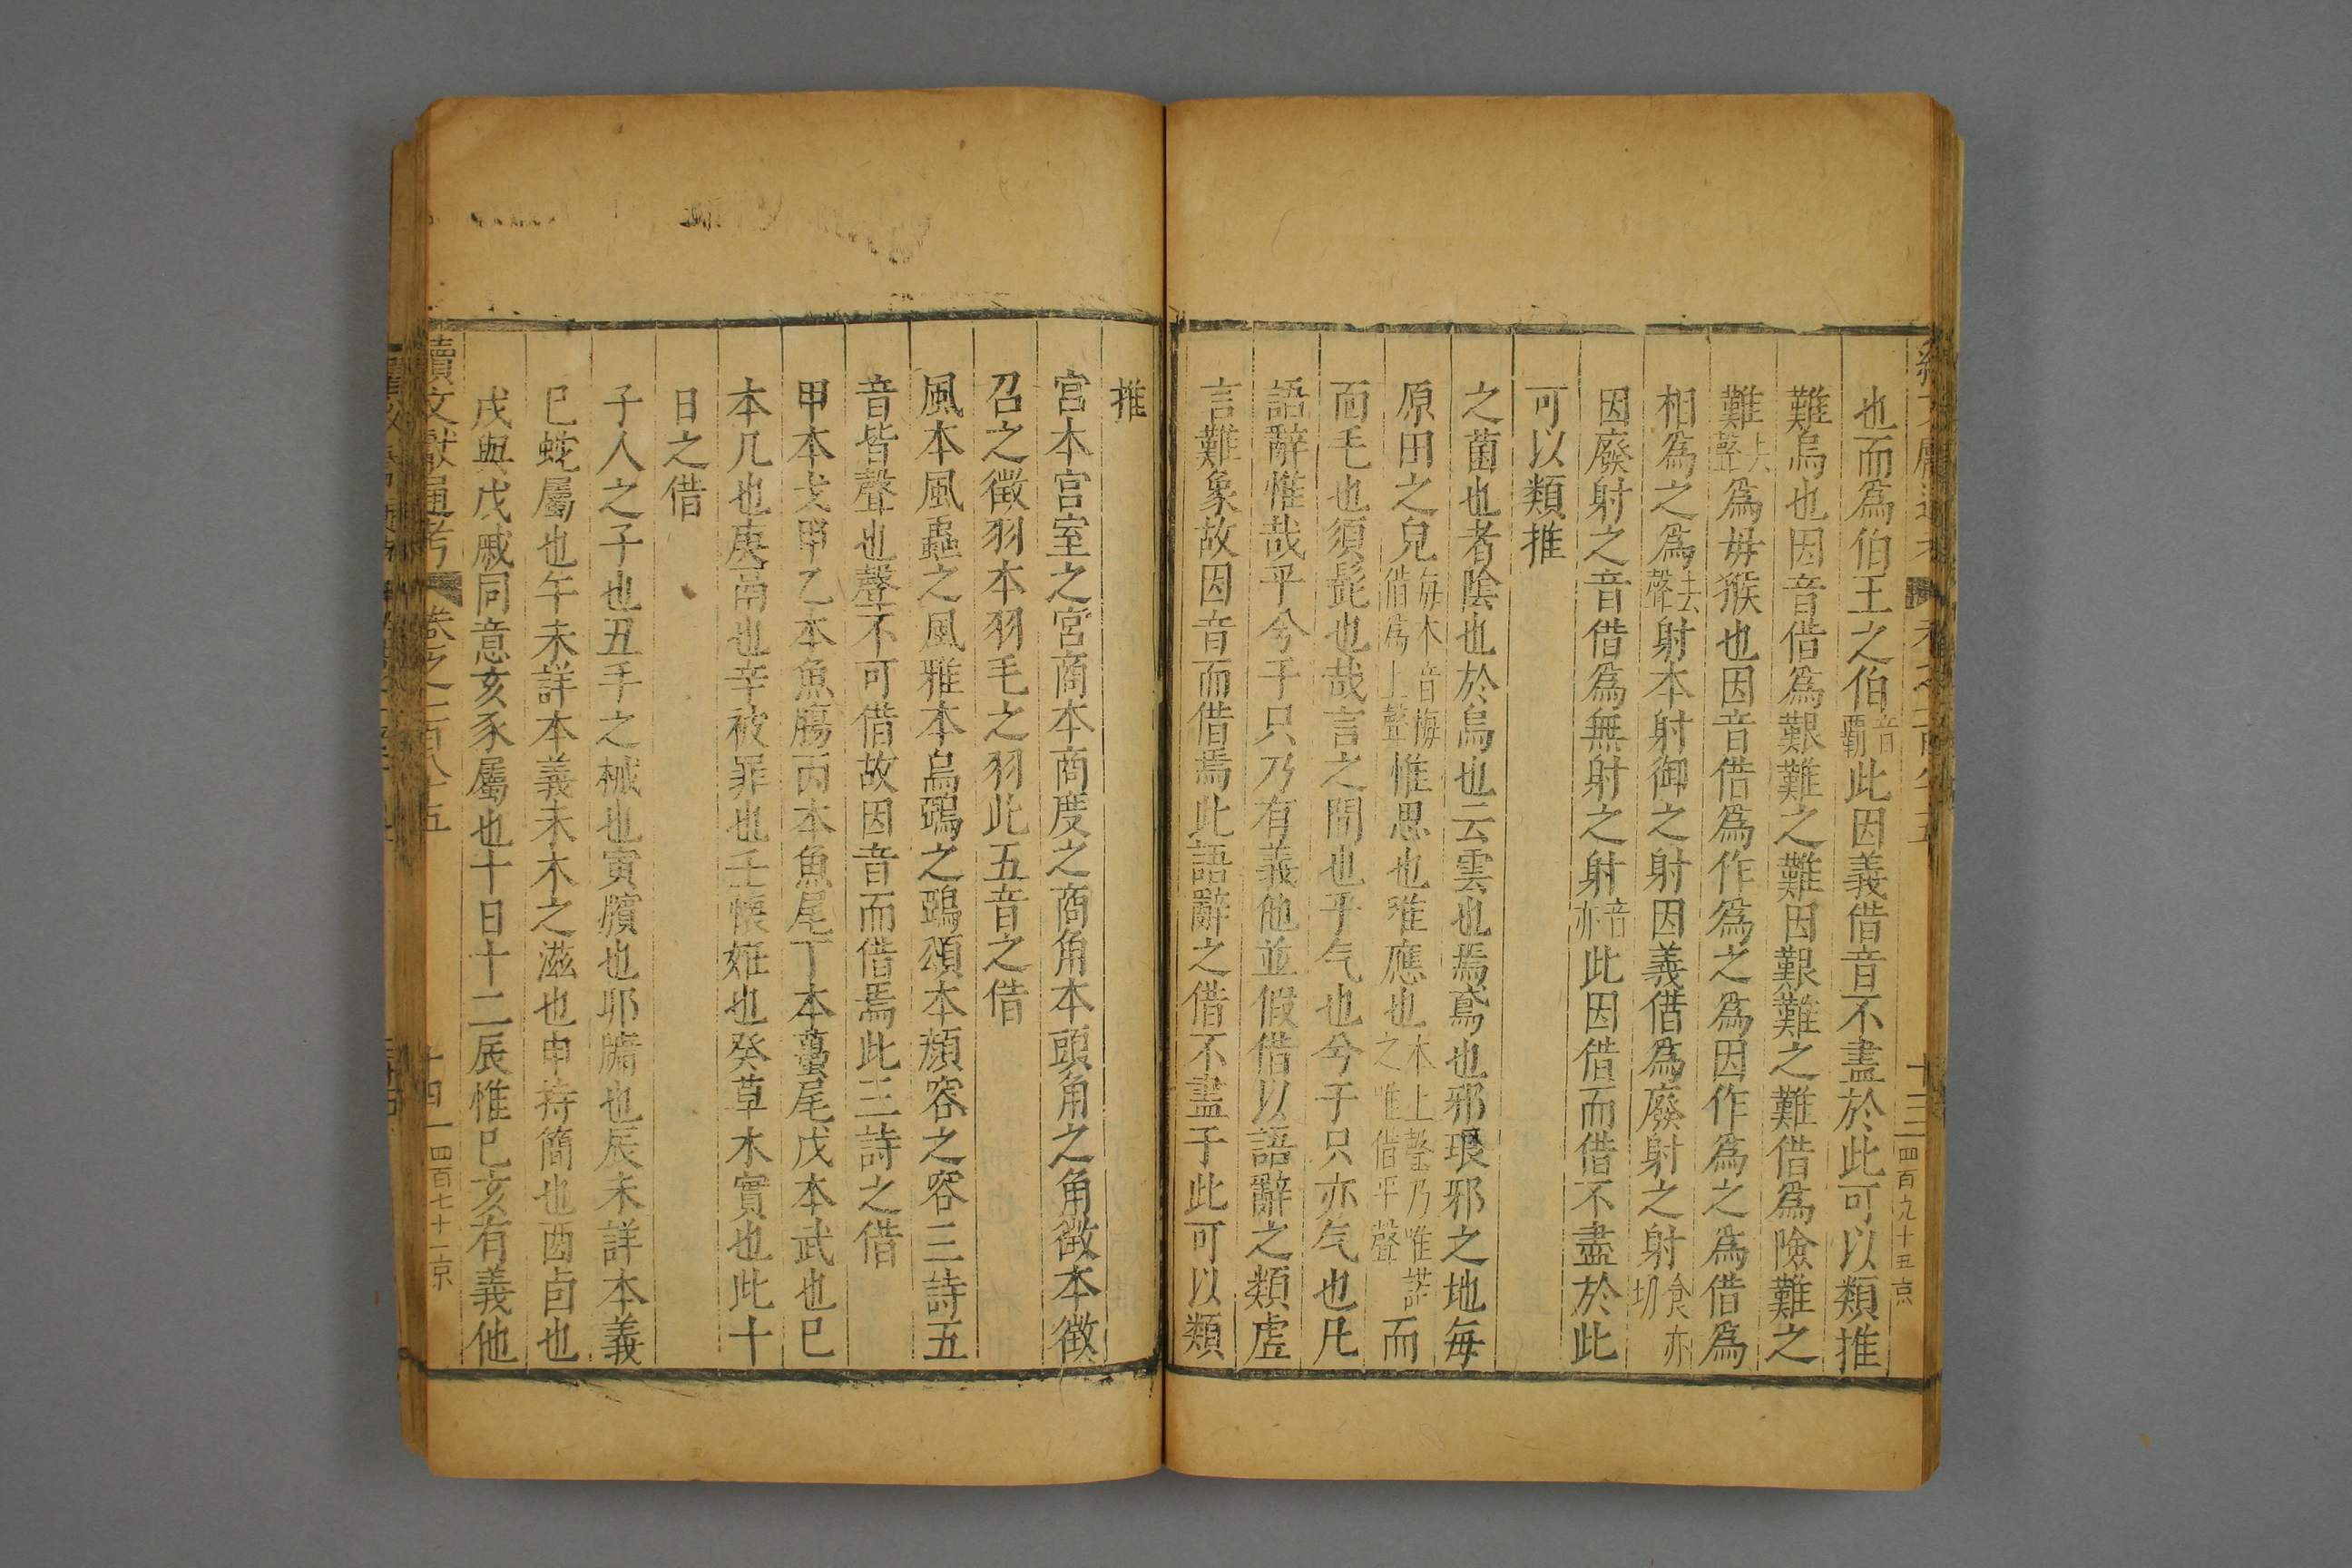 也而為伯王之伯音霸此因義借音不盡於此可以類推
難烏也因音借為艱難之難因艱難之難借為險難之
難去聲為母猴也因音借為作為之為因作為之為借為
相為之為去聲射本射御之射因義借為廢射之射食亦切
因廢射之音借為無射之射音亦此因借而借不盡於此
可以類推
之菌也者陰也於烏也云雲也焉鳶也邪琅邪之地每
原田之皃每本音梅借為上聲惟思也唯應也本上聲乃唯諾之唯借平聲而
而毛也須髭也哉言之間也乎气也兮于只亦气也凡
語辭惟哉乎兮于只乃有義他並假借以語辭之類虛
言難象故因音而借焉此語辭之借不盡于此可以類
推
宮本宮室之宮商本商度之商角本頭角之角徵本徵
召之徵羽本羽毛之羽此五音之借
風本風蟲之風雅本烏鵶之鵶頌本顏容之容三詩五
音皆聲也聲不可借故因音而借焉此三詩之借
甲本戈甲乙本魚腸丙本魚尾丁本蠆尾戊本武也巳
本几也庚鬲也辛被罪也壬懷妊也癸草木實也此十
日之借
子人之子也丑手之械也寅臏也卯牖也辰未詳本義
巳蛇屬也午未詳本義未木之滋也申持簡也酉卣也
戌與戊戚同意亥豕屬也十日十二辰惟巳亥有義他
續文獻通考 卷之一百八十五 十四 四百七十一 京
十三 四百九十五 京